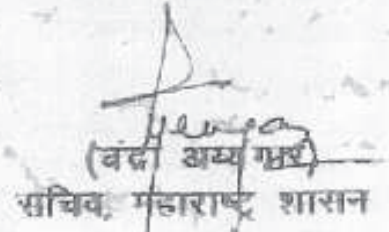 (वंद्रा अय्यंगार)
सचिव, महाराष्ट्र शासन